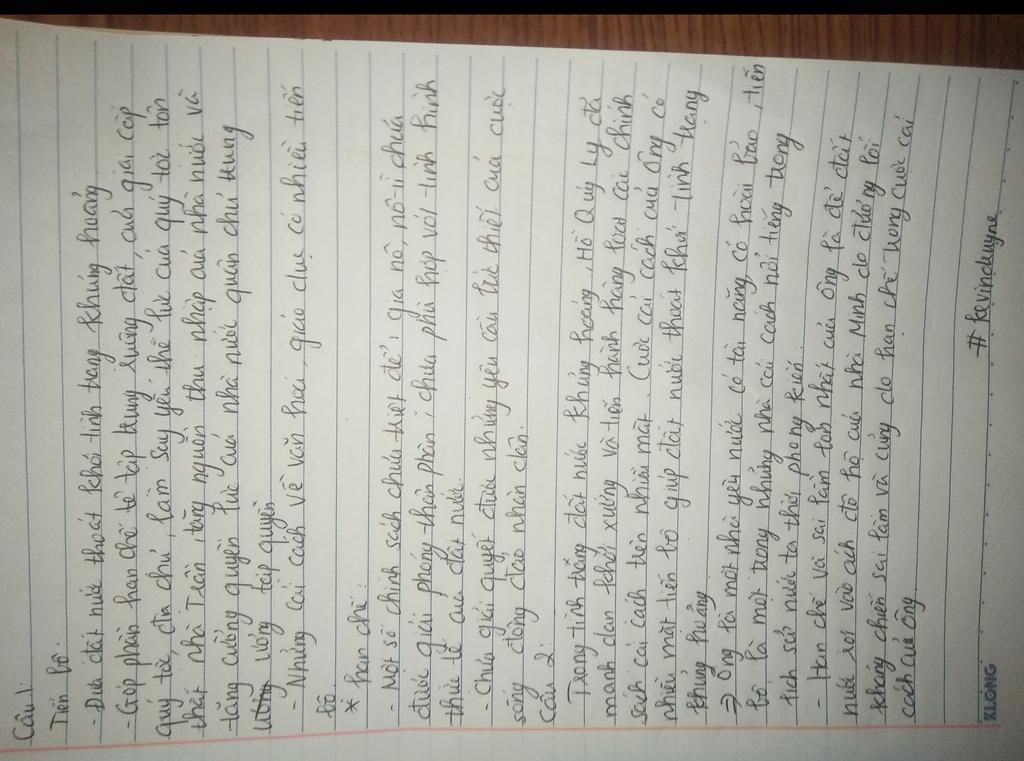 Câu 1:
Tiến bộ:
- Đưa đất nước thoát khỏi tình trạng khủng hoảng
- Góp phần hạn chế tệ tập trung ruộng đất, của giai cấp
quý tộc, địa chủ, làm suy yếu thế lực của quý tộc tôn
thất nhà Trần, tăng nguồn thu nhập của nhà nước và
tăng cường quyền lực của nhà nước quân chủ trung
ương tập quyền
- Những cải cách về văn hoá, giáo dục có nhiều tiến
bộ
* hạn chế:
- Một số chính sách chưa triệt để: gia nô, nô tì chưa
được giải phóng thân phận; chưa phù hợp với tình hình
thực tế của đất nước.
- Chưa giải quyết được những yêu cầu bức thiết của cuộc
sống đông đảo nhân dân.
Câu 2:
Trong tình trạng đất nước khủng hoảng, Hồ Quý Ly đã
mạnh dạn khởi xướng và tiến hành hàng loạt cải chính
sách cải cách trên nhiều mặt. Cuộc cải cách của ông có
nhiều mặt tiến bộ giúp đất nước thoát khỏi tình trạng
khủng hoảng
=> Ông là một nhà yêu nước có tài năng, có hoài bão, tiến
bộ, là một trong những nhà cải cách nổi tiếng trong
lịch sử nước ta thời phong kiến.
- Hạn chế và sai lầm lớn nhất của ông là để đất
nước rơi vào ách đô hộ của nhà Minh do đường lối
kháng chiến sai lầm và cũng do hạn chế trong cuộc cải
cách của ông
# kevinduyne
KLONG